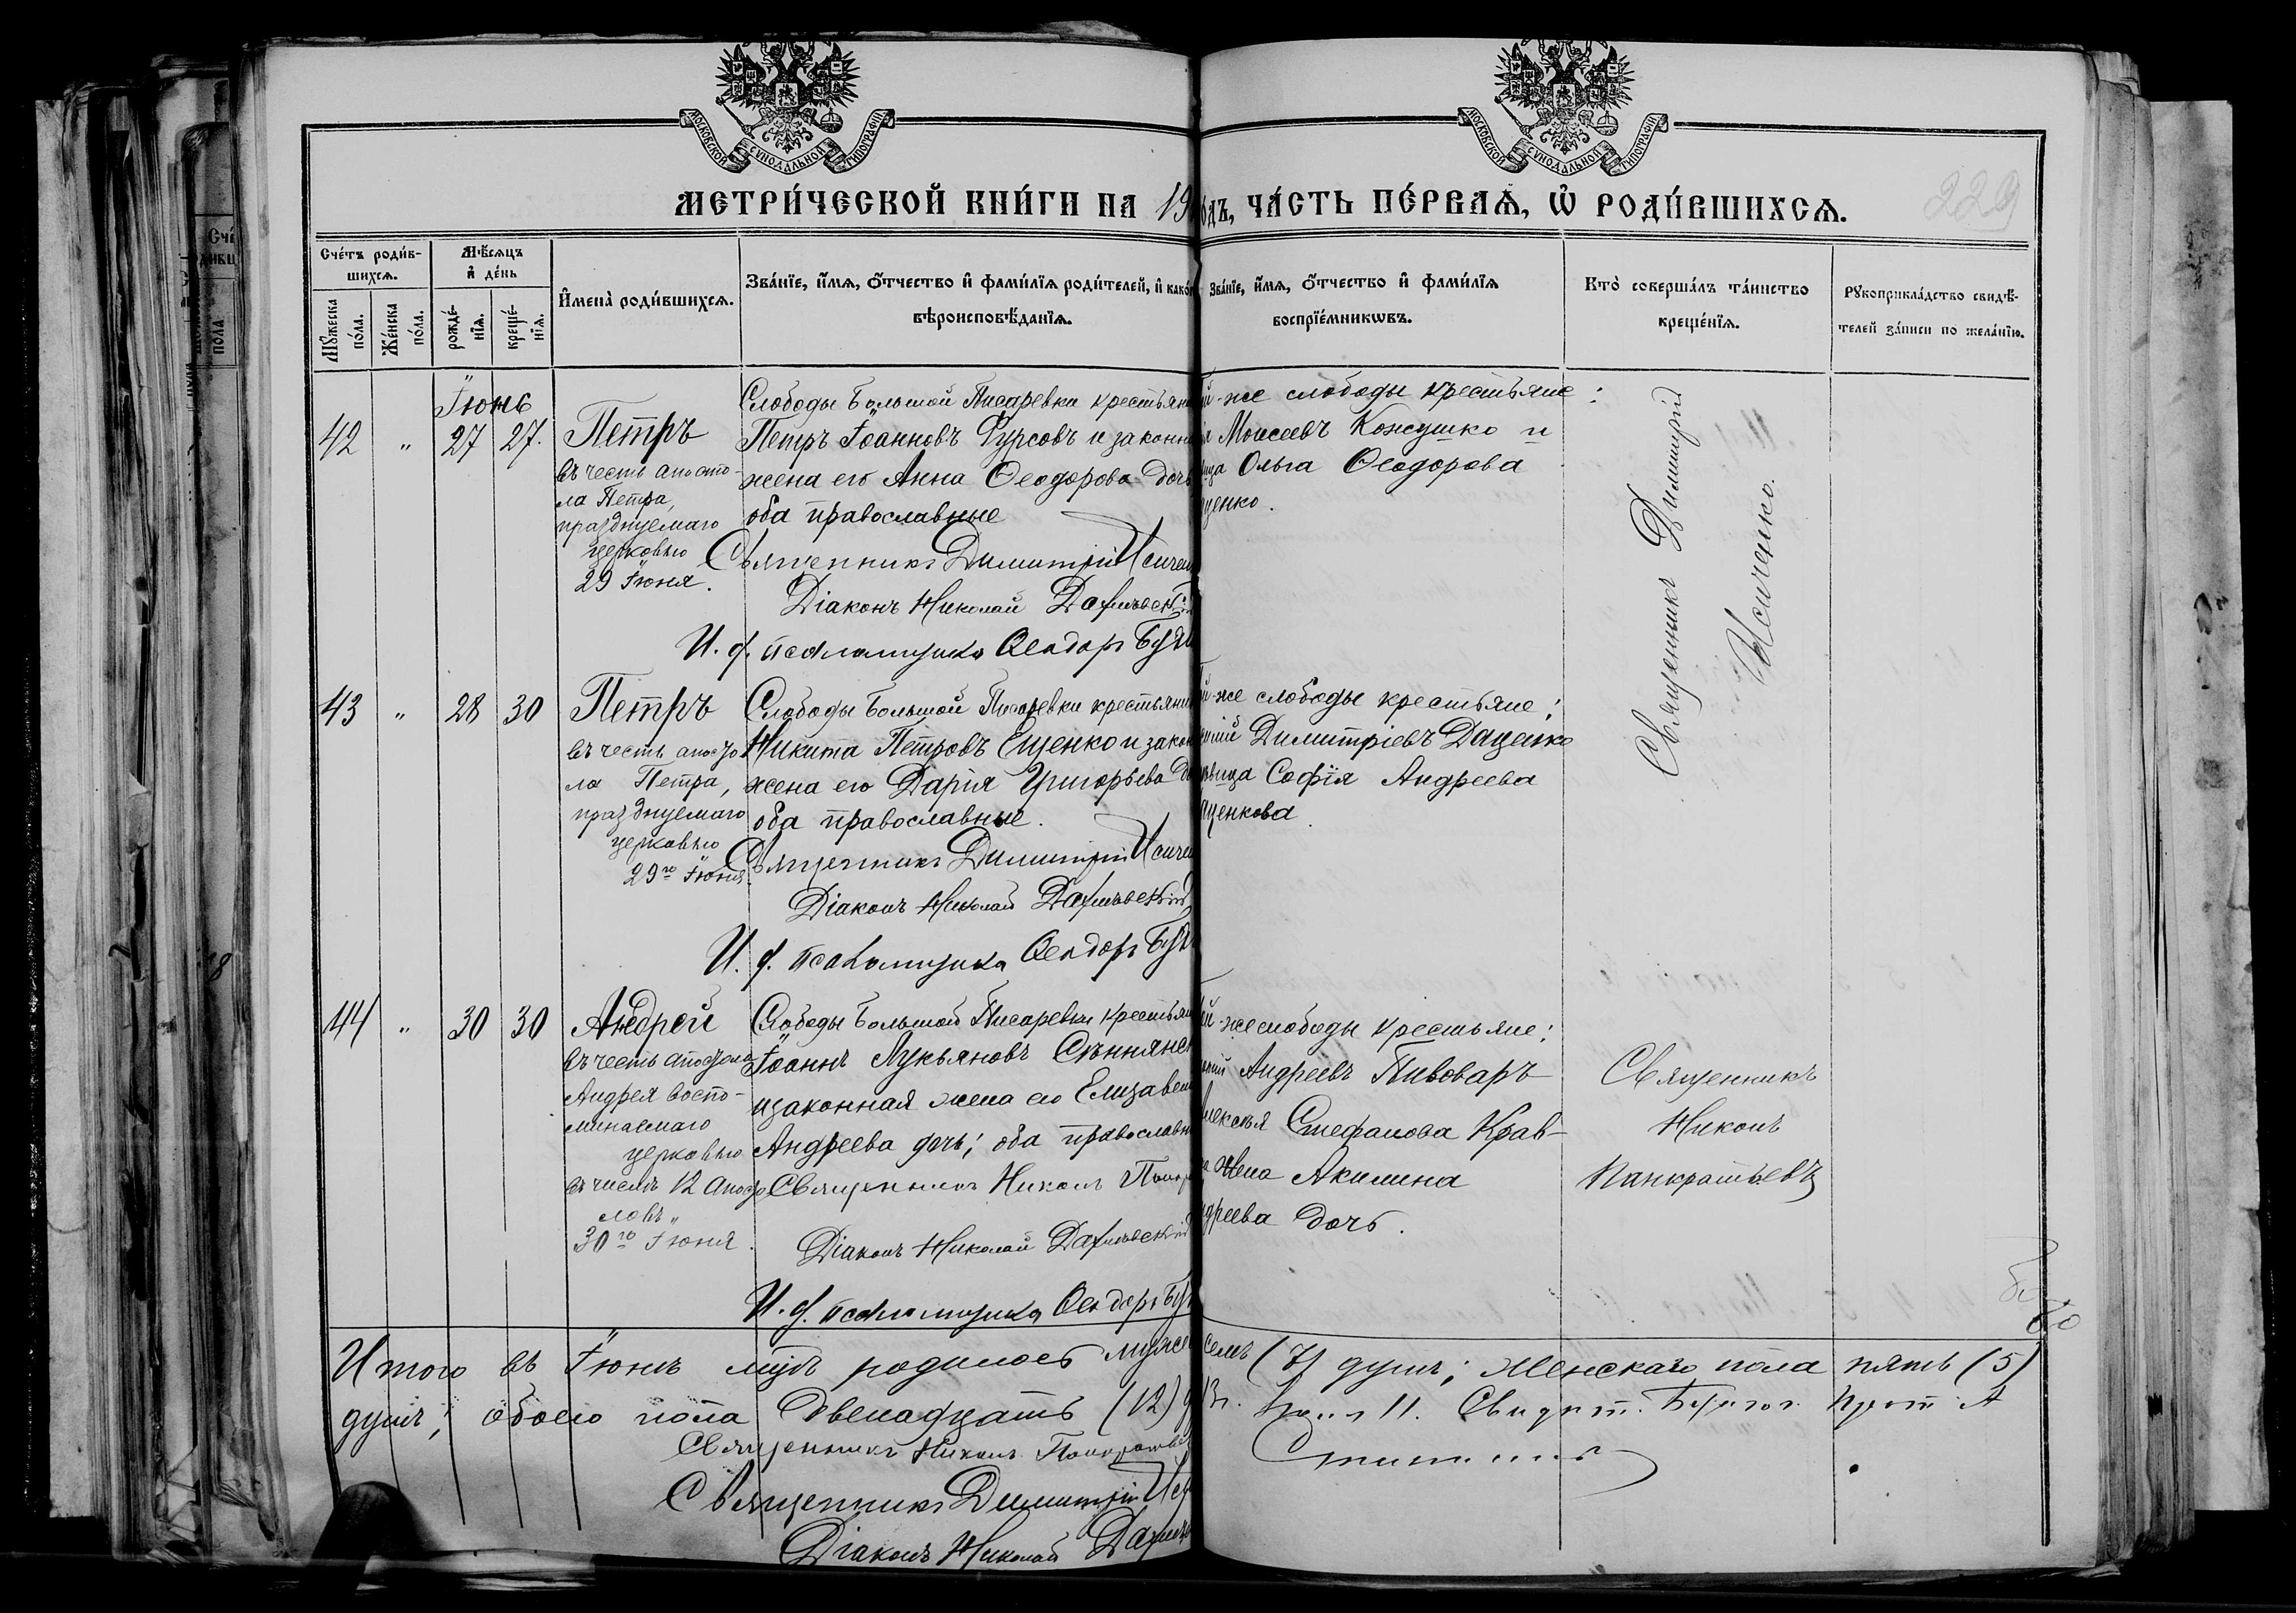 МОСКОВСКОЙ СѴНОДАЛЬНОЙ ТИПОГРАФІИ
МОСКОВСКОЙ СѴНОДАЛЬНОЙ ТИПОГРАФІИ
МЕТРИ́ЧЕСКОЙ КНИ́ГИ НА 19
одъ, ЧА́СТЬ ПЕ́РВАѦ, Ѡ҆ РОДИ́ВШИХСѦ.
229
Сче́тъ роди́в-
шихсѧ.
Мꙋ́жеска по́ла.
Же́нска по́ла.
Мѣ́сѧцъ
и҆ де́нь
рожде́-
нїѧ.
креще́-
нїѧ.
И҆мена̀ роди́вшихсѧ.
Зва́нїе, и҆́мѧ, ѻ҆́тчество и҆ фами́лїѧ роди́телей, и҆ како́
вѣроисповѣ́данїѧ.
Зва́нїе, и҆́мѧ, ѻ҆́тчество и҆ фами́лїѧ
воспрїе́мникѡвъ.
Кто̀ соверша́лъ та́инство
креще́нїѧ.
Рꙋкоприкла́дство свидѣ́-
телей за́писи по жела́нїю.
Іюнь
42 " 27 27.
Петръ
въ честь апосто-
ла Петра,
празднуемаго
церковью
29 Іюня.
Слободы Большой Писаревки крестьян
Петръ Іоанновъ Фурсовъ и законн
жена его Анна Ѳеодорова дочь
оба православные
Священникъ Димитрій Исиче
Діаконъ Николай
И. д. псаломщика Ѳеодоръ
й-же слободы крестьяне:
Моисеевъ Кожушко и
ца Ольга Ѳеодорова
ценко.
Священникъ Димитрій
Исиченко.
43 " 28 30
Петръ
въ честь апосто
ла Петра,
празднуемаго
церковью
29го Іюня.
Слободы Большой Писаревки крестьяни
Никита Петровъ Ещенко и закон
жена его Дарія Григорьева до
оба православные.
Священникъ Димитрій Исиче
Діаконъ Николай
И. д. псаломщика Ѳеодоръ
й-же слободы крестьяне;
Димитріевъ Даценко
вица Софія Андреева
ценкова
44 " 30 30
Андрей
въ честь апостола
Андрея воспо-
минаемаго
церковью
въ числѣ 12 апосто
ловъ"
30го Іюня.
Слободы Большой Писаревки крестьян
Іоаннъ Лукьяновъ
и законная жена его Елизавет
Андреева дочь; оба православн
Священникъ Никонъ
Діаконъ Николай
И. д. псаломщика Ѳеодоръ
й-же слободы крестьяне:
Андреевъ Пивоваръ
Стефанова Крав-
жена Акилина
дреева дочь.
Священникъ
Никонъ
Панкратьевъ
Итого въ Іюнѣ мѣс. родилось мужс
семь (7) душъ; женскаго пола пять (5)
душъ; обоего пола двенадцать (12) д
Священникъ Никонъ Панкратье
Священникъ Димитрій
Діаконъ Николай